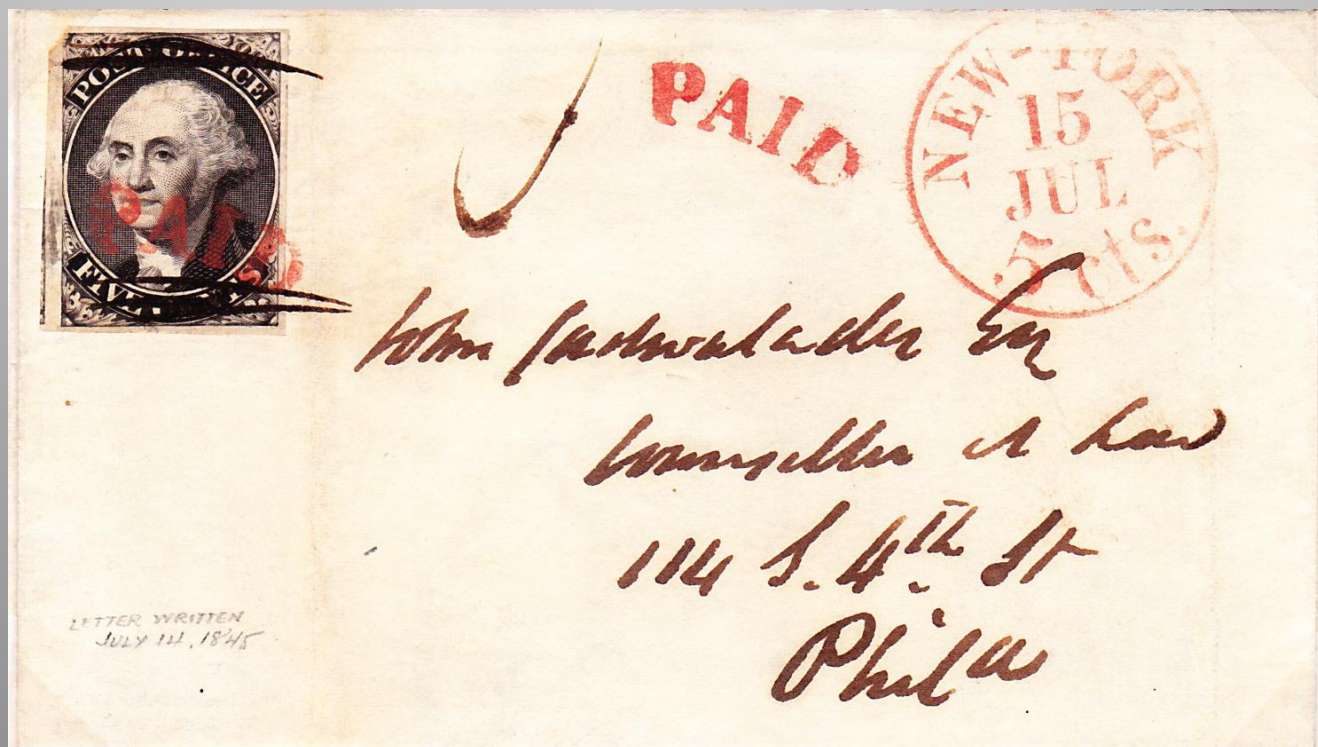 POST OFFICE
PAID
FIVE
PAID
NEW-YORK
15
JUL
5 cts.
John Cadwalader Esq
Counsellor at Law
114 S. 4th St
Phila
LETTER WRITTEN
JULY 14, 1845